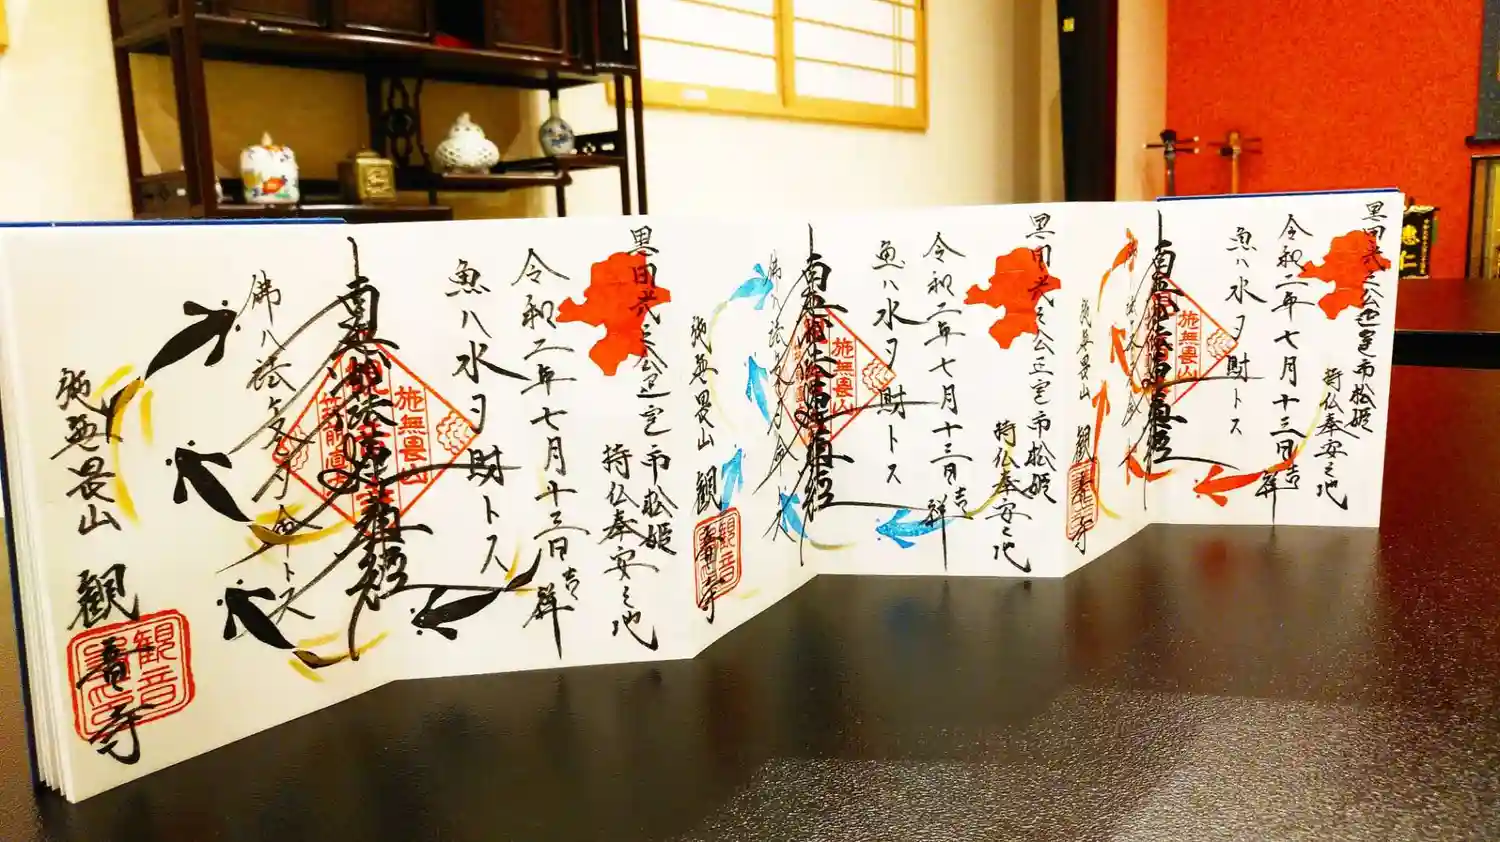 黒田光之公正室市松姫
持仏奉安之地
令和二年七月十三日
吉祥
魚ハ水ヲ財トス
南無妙法蓮華経
施無畏山
佛ハ法ヲ命トス
施無畏山
観音寺
観音
黒田光之公正室市松姫
持仏奉安之地
令和二年七月十三日
吉祥
魚ハ水ヲ財トス
南無妙法蓮華経
施無畏山
施無畏山
観音寺
観音
黒田光之公正室市松姫
持仏奉安之地
令和二年七月十三日
吉祥
魚ハ水ヲ財トス
南無妙法蓮華経
施無畏山
施無畏山
観音寺